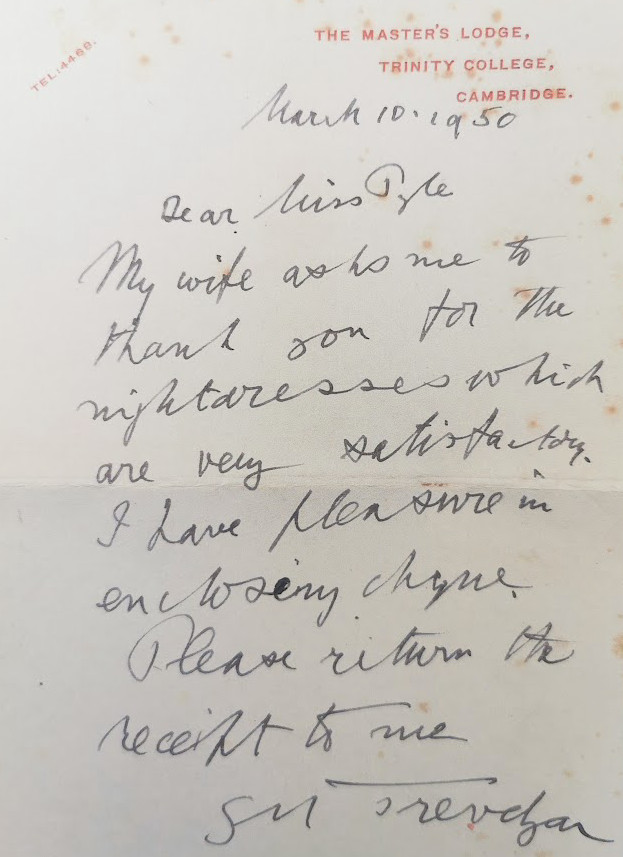 TEL: 4488.
THE MASTER'S LODGE,
TRINITY COLLEGE,
CAMBRIDGE.
March 10. 1950
Dear Miss Pyle
My wife asks me to
thank you for the
nightdresses which
are very satisfactory.
I have pleasure in
enclosing cheque.
Please return the
receipt to me
GM Trevelyan